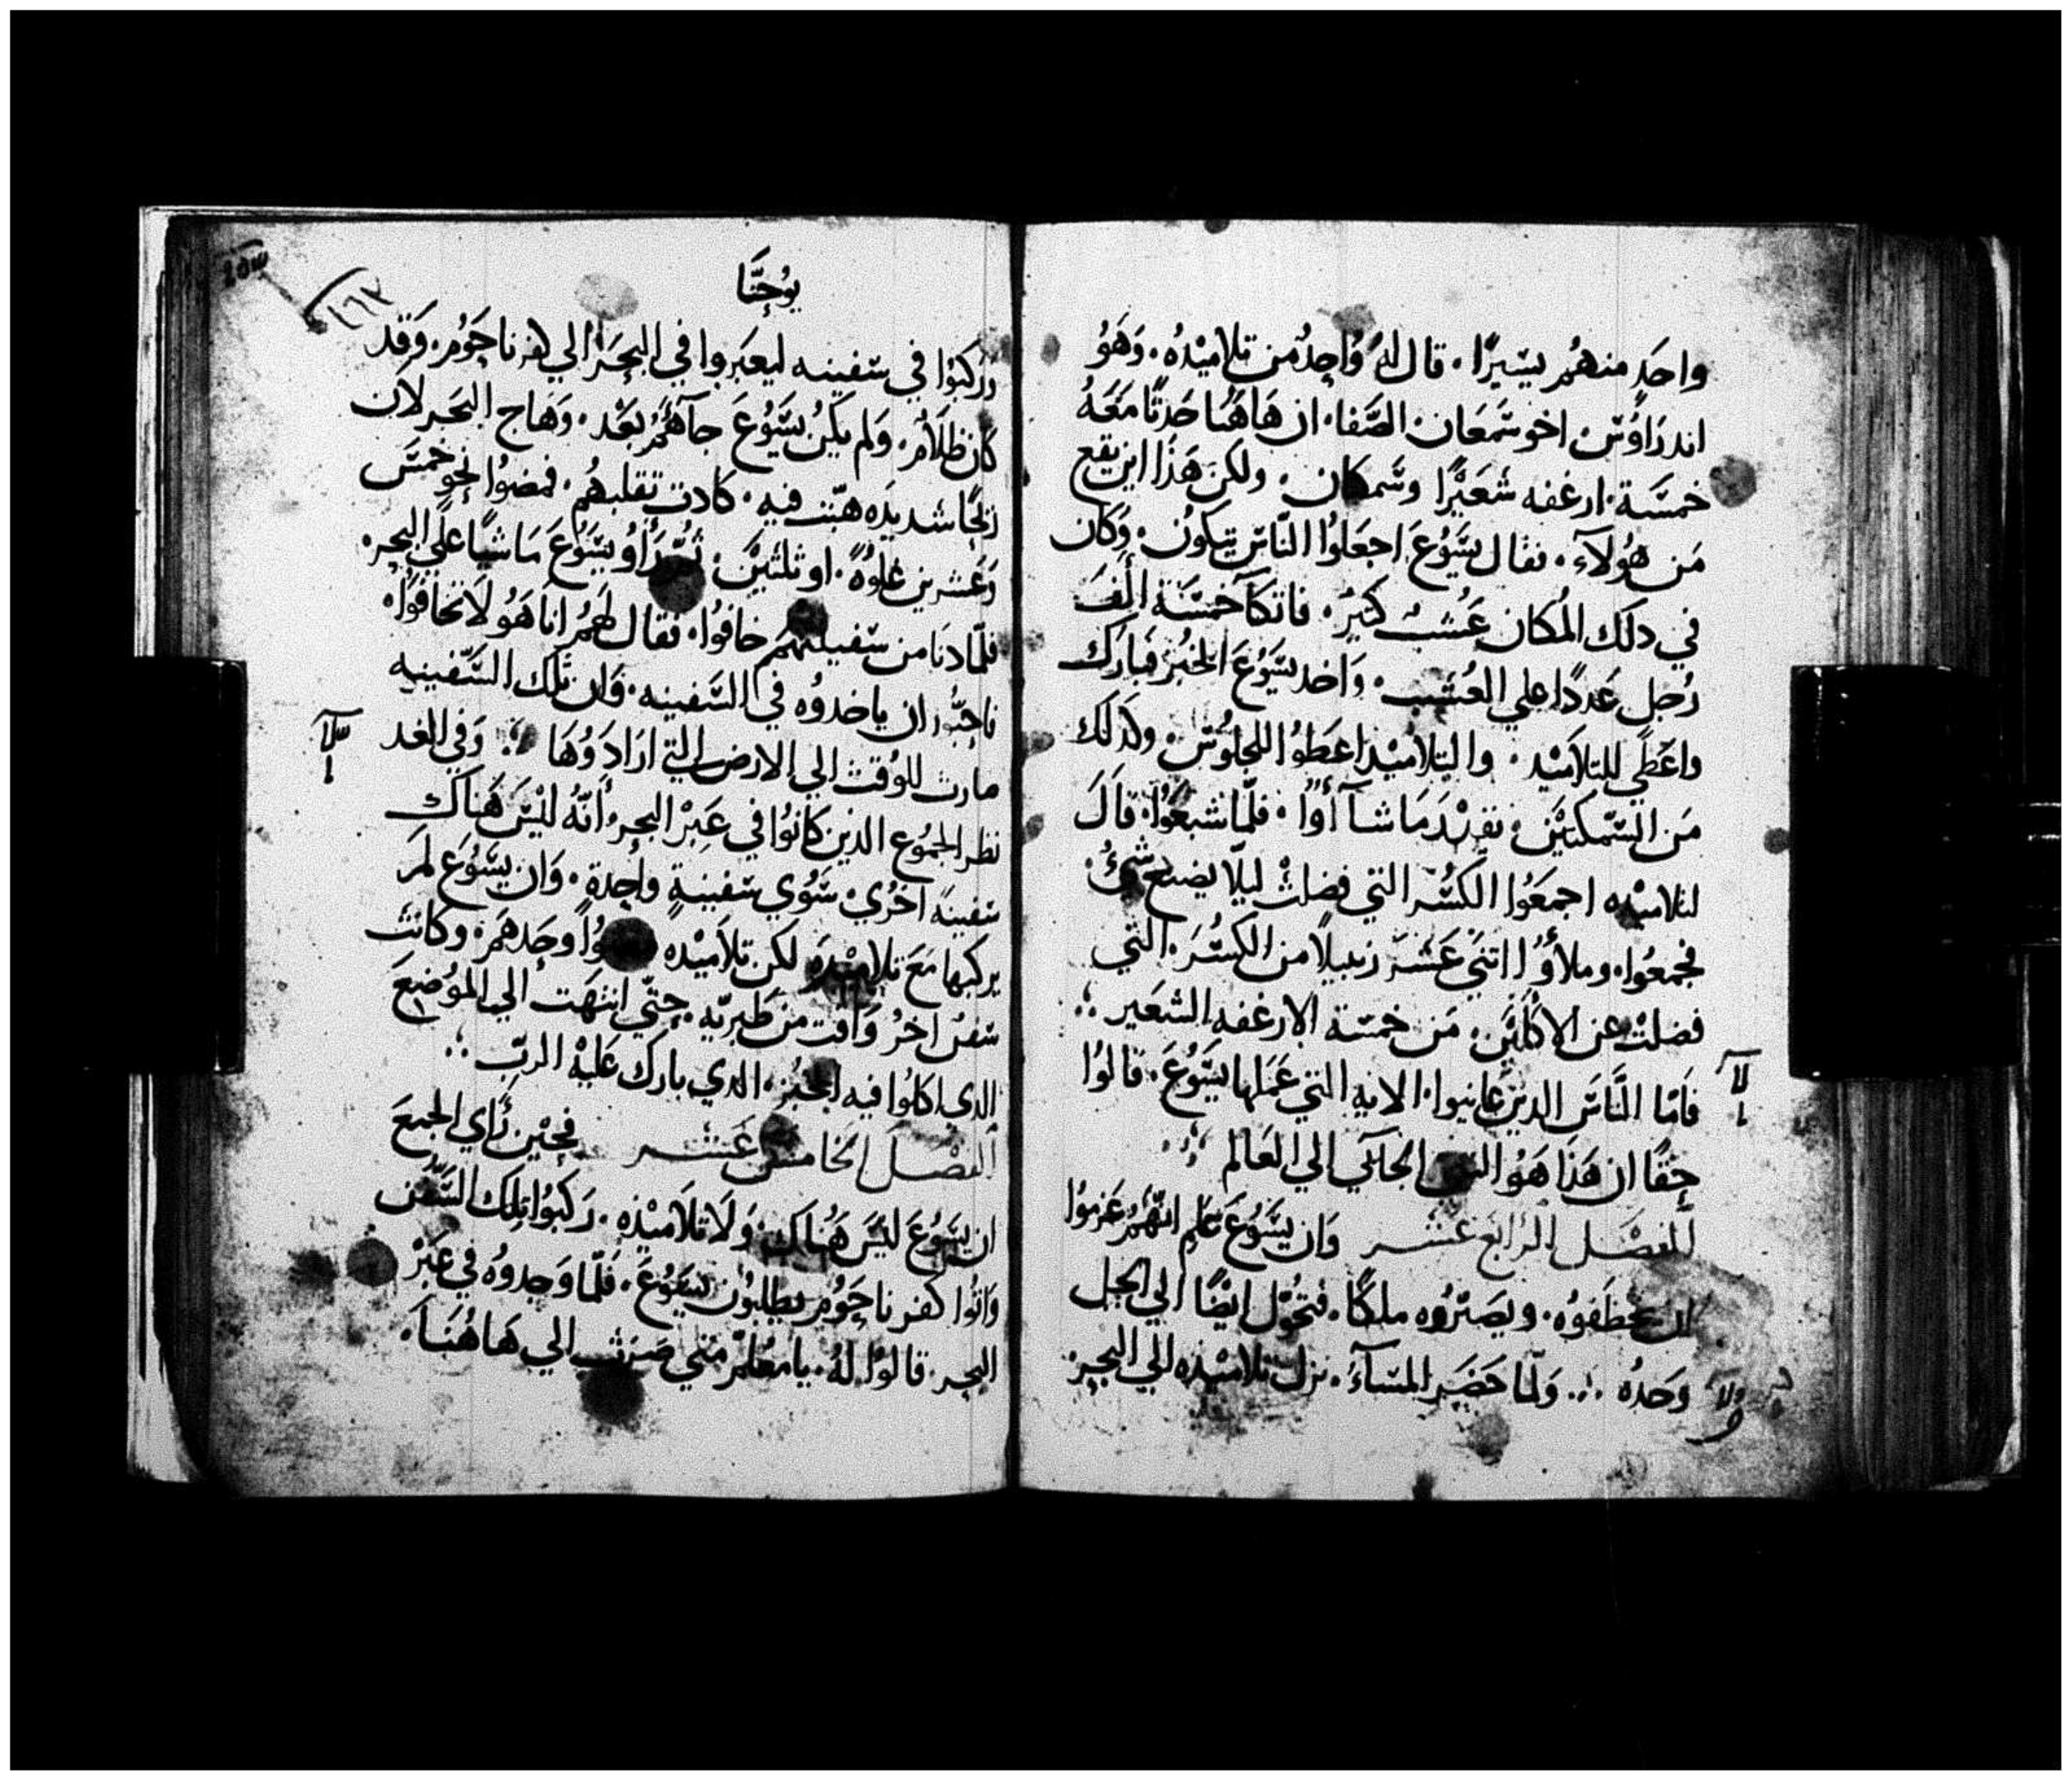 واحَدٍ منهُم يسَيرًا. قال لهُ وَاحِدٌ من تلاميْدُه. وَهَوُ
اندرَاوُسَ اخو سَمَعَان الصَّفا. ان هَاهُنا حَدثًا مَعَهُ
خمسَة ارغفه شَعَيْرًا وسَمكتان. ولكن هَذَا اين يقع
مَن هوُلآءِ. فقال يسَوُعَ اجعَلوُا النّاسَ يتكون. وَكان
في دلك المُكان عَُشبٌ كثيرٌ. فاتكآ خمسَة الَفَ
رُجل عَددًا علي العُشب. وَاخد يسَوُعَ الخبُز فبارك
واعَطي للتلاَميْد. والتلاميْد اعَطوُا للجلوُسَ. وكدلك
مَن السَّمكتيَْن. بقدْرَ مَا شآ أوُا. فلّما شبعَوُا. قالَ
لتلاميْده اجمَعَُوا الكسَُر التي فضلتْ ليلّا يضيع شيٌ
فجمعُوا. وملأُوا اتنيَ عَشَرَ زنبيلًا من الكسَُر. التي
فضلتْ عن الاكليَْن. مَن خمسَة الارغفه الشعَير ⁘
فَامّا النَّاسَ الدين عَاينوا. الايه التي عَمَلها يسَّوُعَ. قالوُا
حقًا ان هَذا هَوُ النبي الجاَئي الي العَالم
الفصَل الرابَع عَشَر وَان يسَّوُعَ عَلم انهُّم عَزموُا
ان يخطَفوُه. ويصَيّرُوه ملكًا. فتحُوّل ايضًا الي الجبل
وَحَدُه ⁘ وَلمّا حَضَر المسَآءُ. نزل تلاميْده الي البحر
لا
يوُحنَّا
وَركبَوُا في سَفينه ليعَبروا في البحَر الي كفرناحَوُم. وَقد
كان ظلاَمٌ. وَلم يكنُ يسَّوُعَ جآهُم بعَْد. وَهَاج البحَر لان
رَيحًا شديدَه هبّت فيه. كادت تقلبهُم. فمضوُا نحَو خمسَة
وَعَشرين غلوُةً. او ثلثيْن. ثُم رَأَوُ يسَّوُعَ مَاشيًا علَي البحر.
فلّما دنَا من سَفينتهم خافوُا. فقال لهمُ انا هَوُ لاَ تخافوُا.
فاحبَّوُا ان ياخدوُه في السَّفينه. وَان تلك السَّفينيه
صارت للوُقت الي الارض التي ارَادَوُهَا ⁘ وَفي الغد
نظر الجمُوع الذين كانوُا في عَبِرْ البحر. انّهُ ليْسَ هَناك
سَفينهً اخرُي. سَوُي سَفينةٍ واحِدةٍ. وَان يسَّوُعَ لَم
يركبها مَعَ تلاميْده لكن تلاَميْده وحَدهَم. وكانت
سَفنٌ اخرُ وَافت مَن طَبريّه حتّي انتهَت الي الموُضعَ
الدي اكلوُا فيه الخبُز. الدي بارك عَليهْ الربّ ⁘
الفصَل الخامسَ عَشَر فحيْن رَأي الجمعَ
ان يسَوُعَ ليْسَ هَُناك. وَلا تلاَميْذه. رَكبوُا تلك السَّفن
وَاتوُا كفرناحَوُم يطلبُون يسَّوُعَ. فلّما وَجدوُه في عَبَرْ
البحر. قالوُا لهُ. يا معَلّم مَتي صَرَت الي هَا هُنَا.